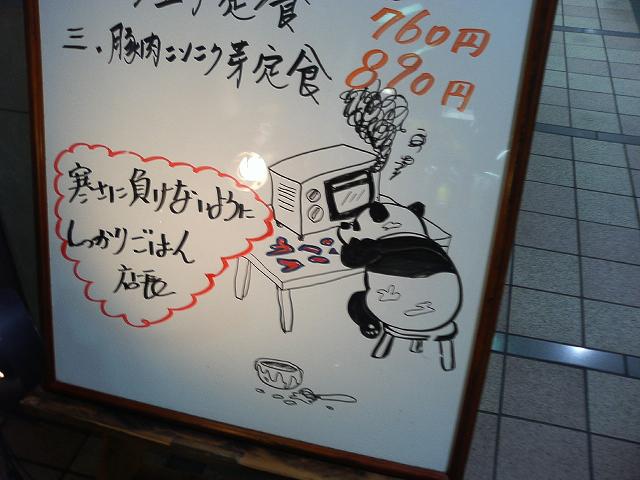 定食 760円
三、豚肉ニンニク芽定食 890円
寒さに負けないように
しっかりごはん
店長